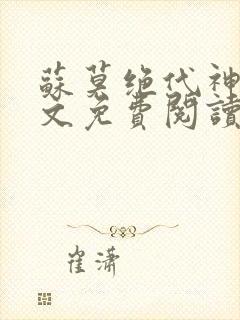 蘇莫绝代神
文免費閱讀
崔潇